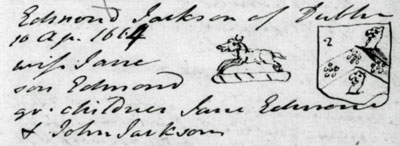 Edmond Jackson of Dublin
10 Ap. 1664
wif Jane
son Edmond
gr. children Jane Edmond
& John Jackson
2